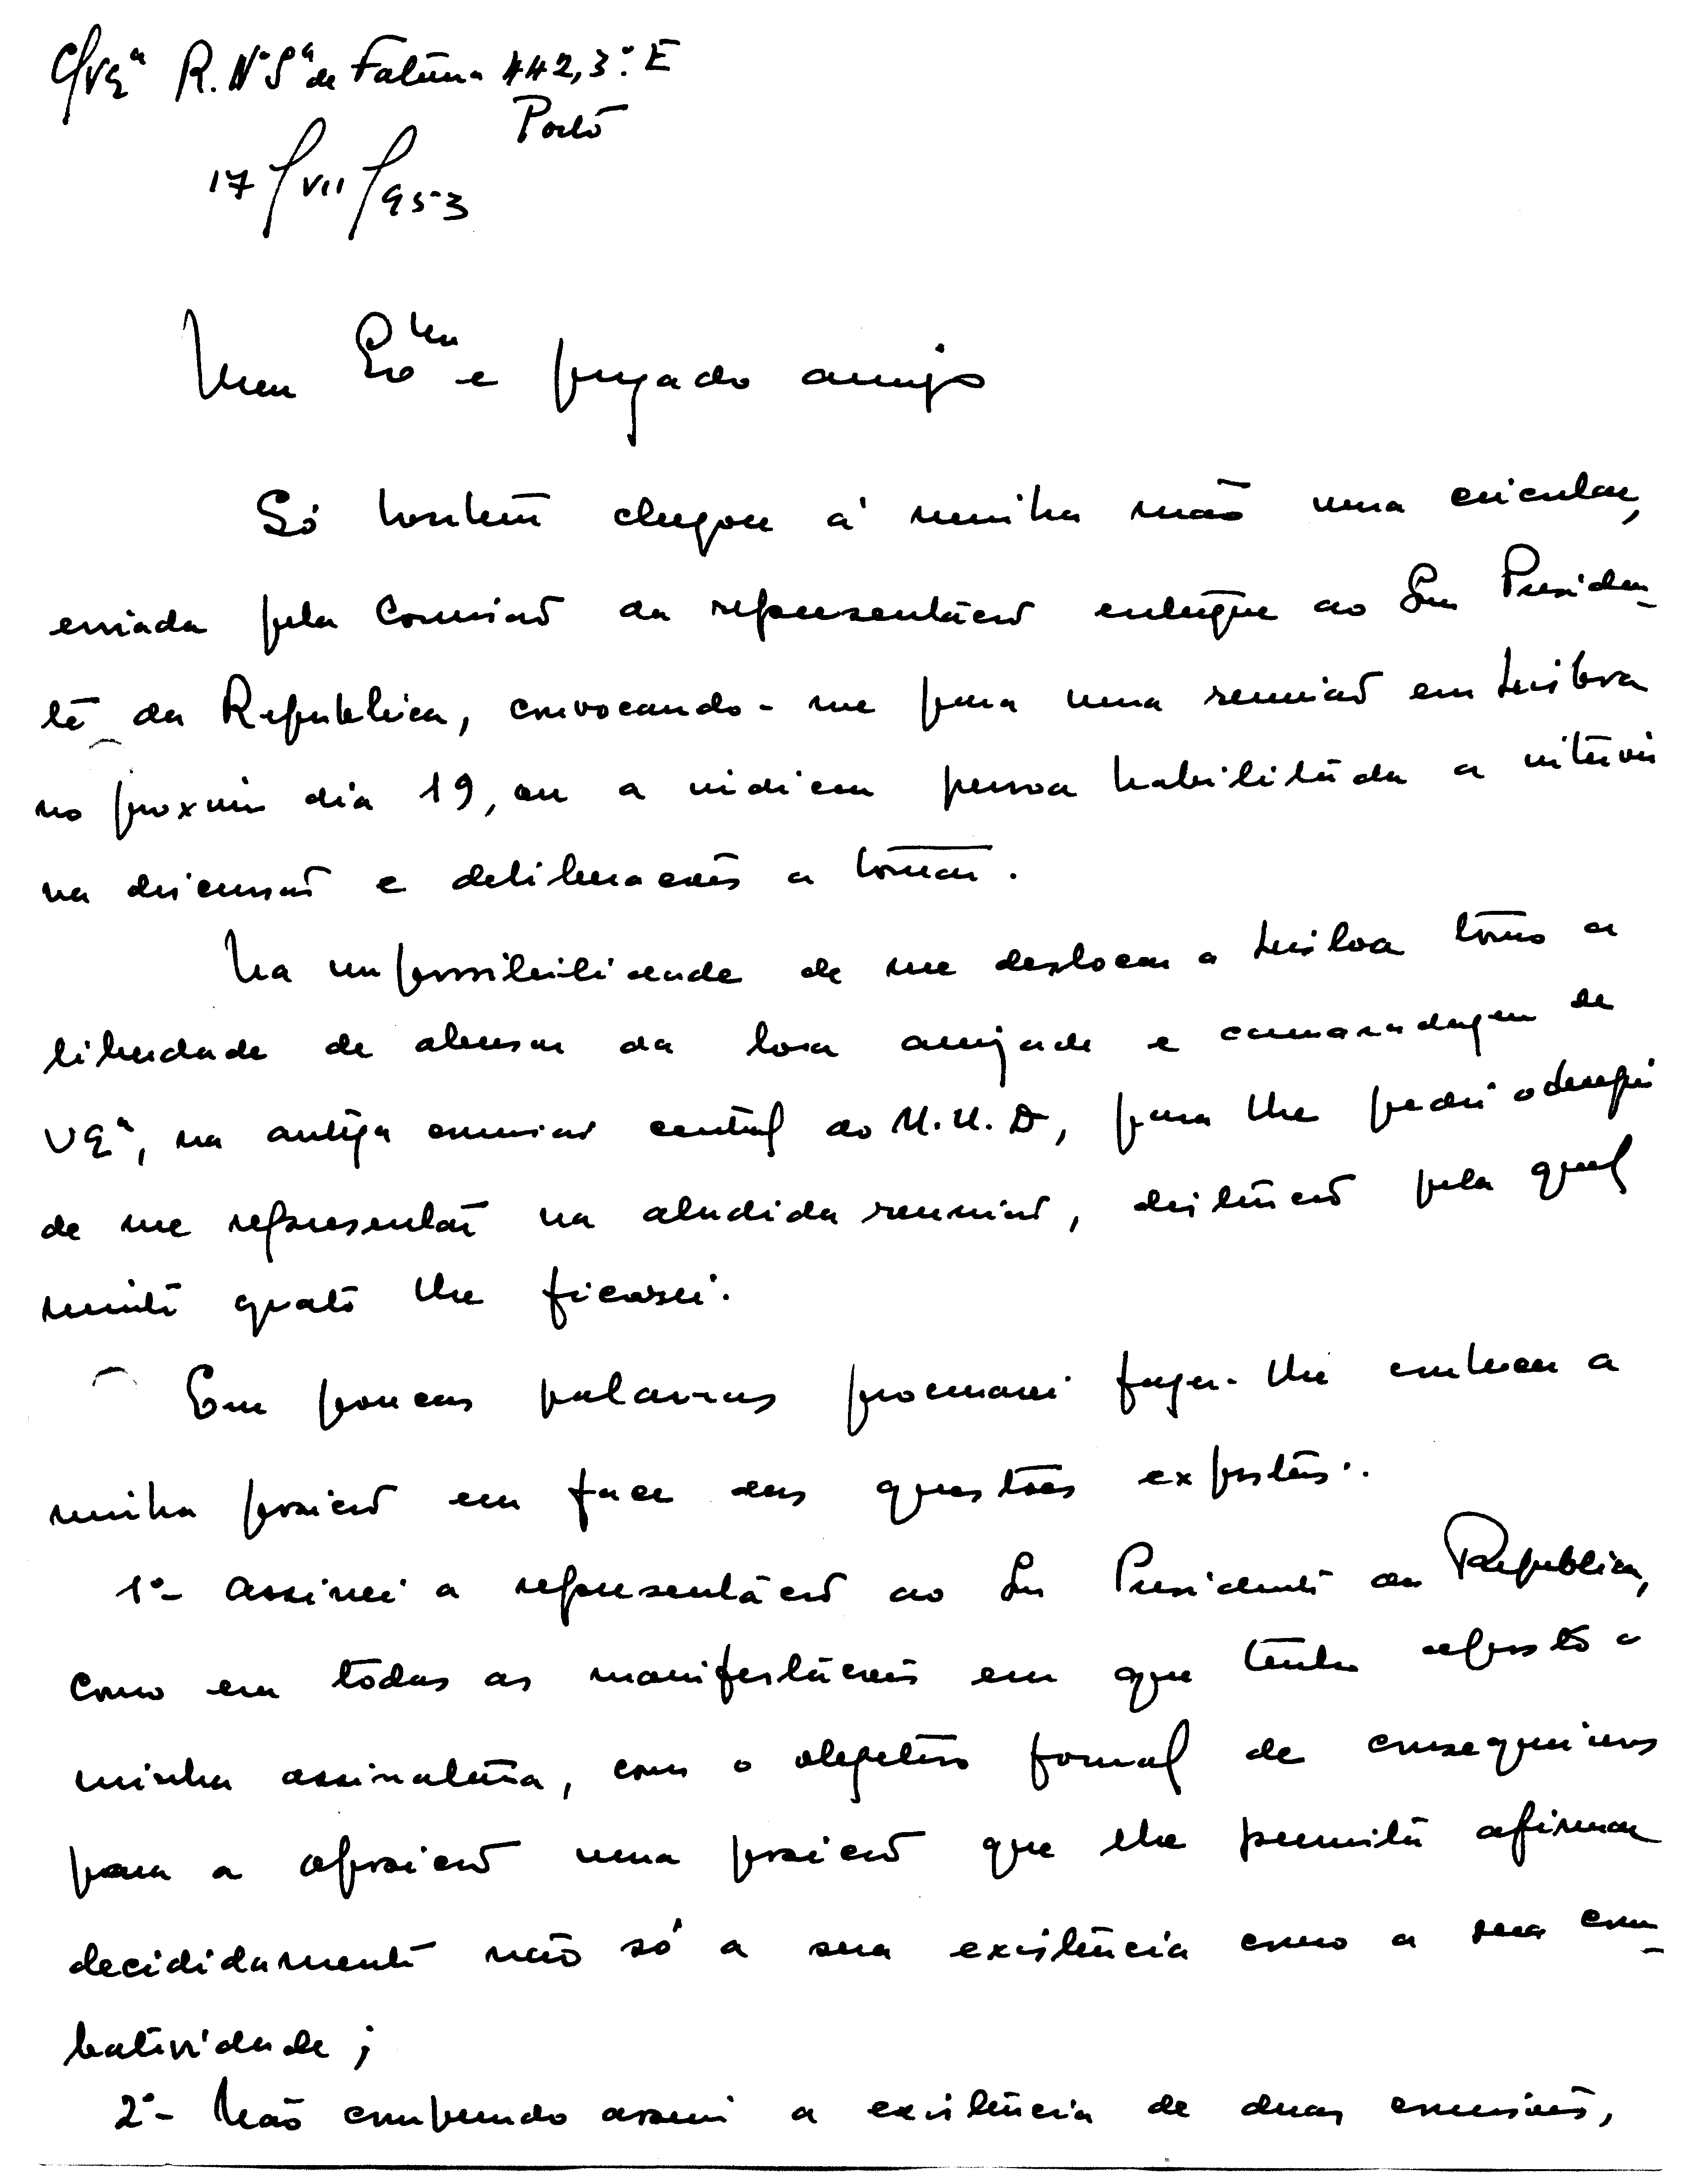 C/ V. Eª R. Nª Sª de Fatima 442, 3º E
Porto
17/VII/953
Meu Exmo e prezado amigo
Só hontem chegou á minha mão uma circular,
enviada pela Comissão da representação entregue ao Snr Presiden-
te da Republica, convocando-me para uma reunião em Lisboa
no proximo dia 19, ou a indicar pessoa habilitada a intervir
na discussão e deliberações a tomar.
Na impossibilidade de me deslocar a Lisboa tomo a
liberdade de abusar da boa amizade e camaradagem de
V Eª, na antiga comissão central do M.U.D, para lhe pedir o obsequio
de me representar na aludida reunião, distinção pela qual
muito grato lhe ficarei.
Em poucas palavras procurarei fazer-lhe conhecer a
minha posição em face das questões expostas:
1º- Assinei a representação ao Snr Presidente da Republica,
como em todas as manifestações em que tenho aposto a
minha assinatura, com o objetivo formal de conseguirmos
para a oposição uma posição que lhe permita afirmar
decididamente não só a sua existência como a sua com-
batividade;
2º- Não compreendo assim a existência de duas comissões,